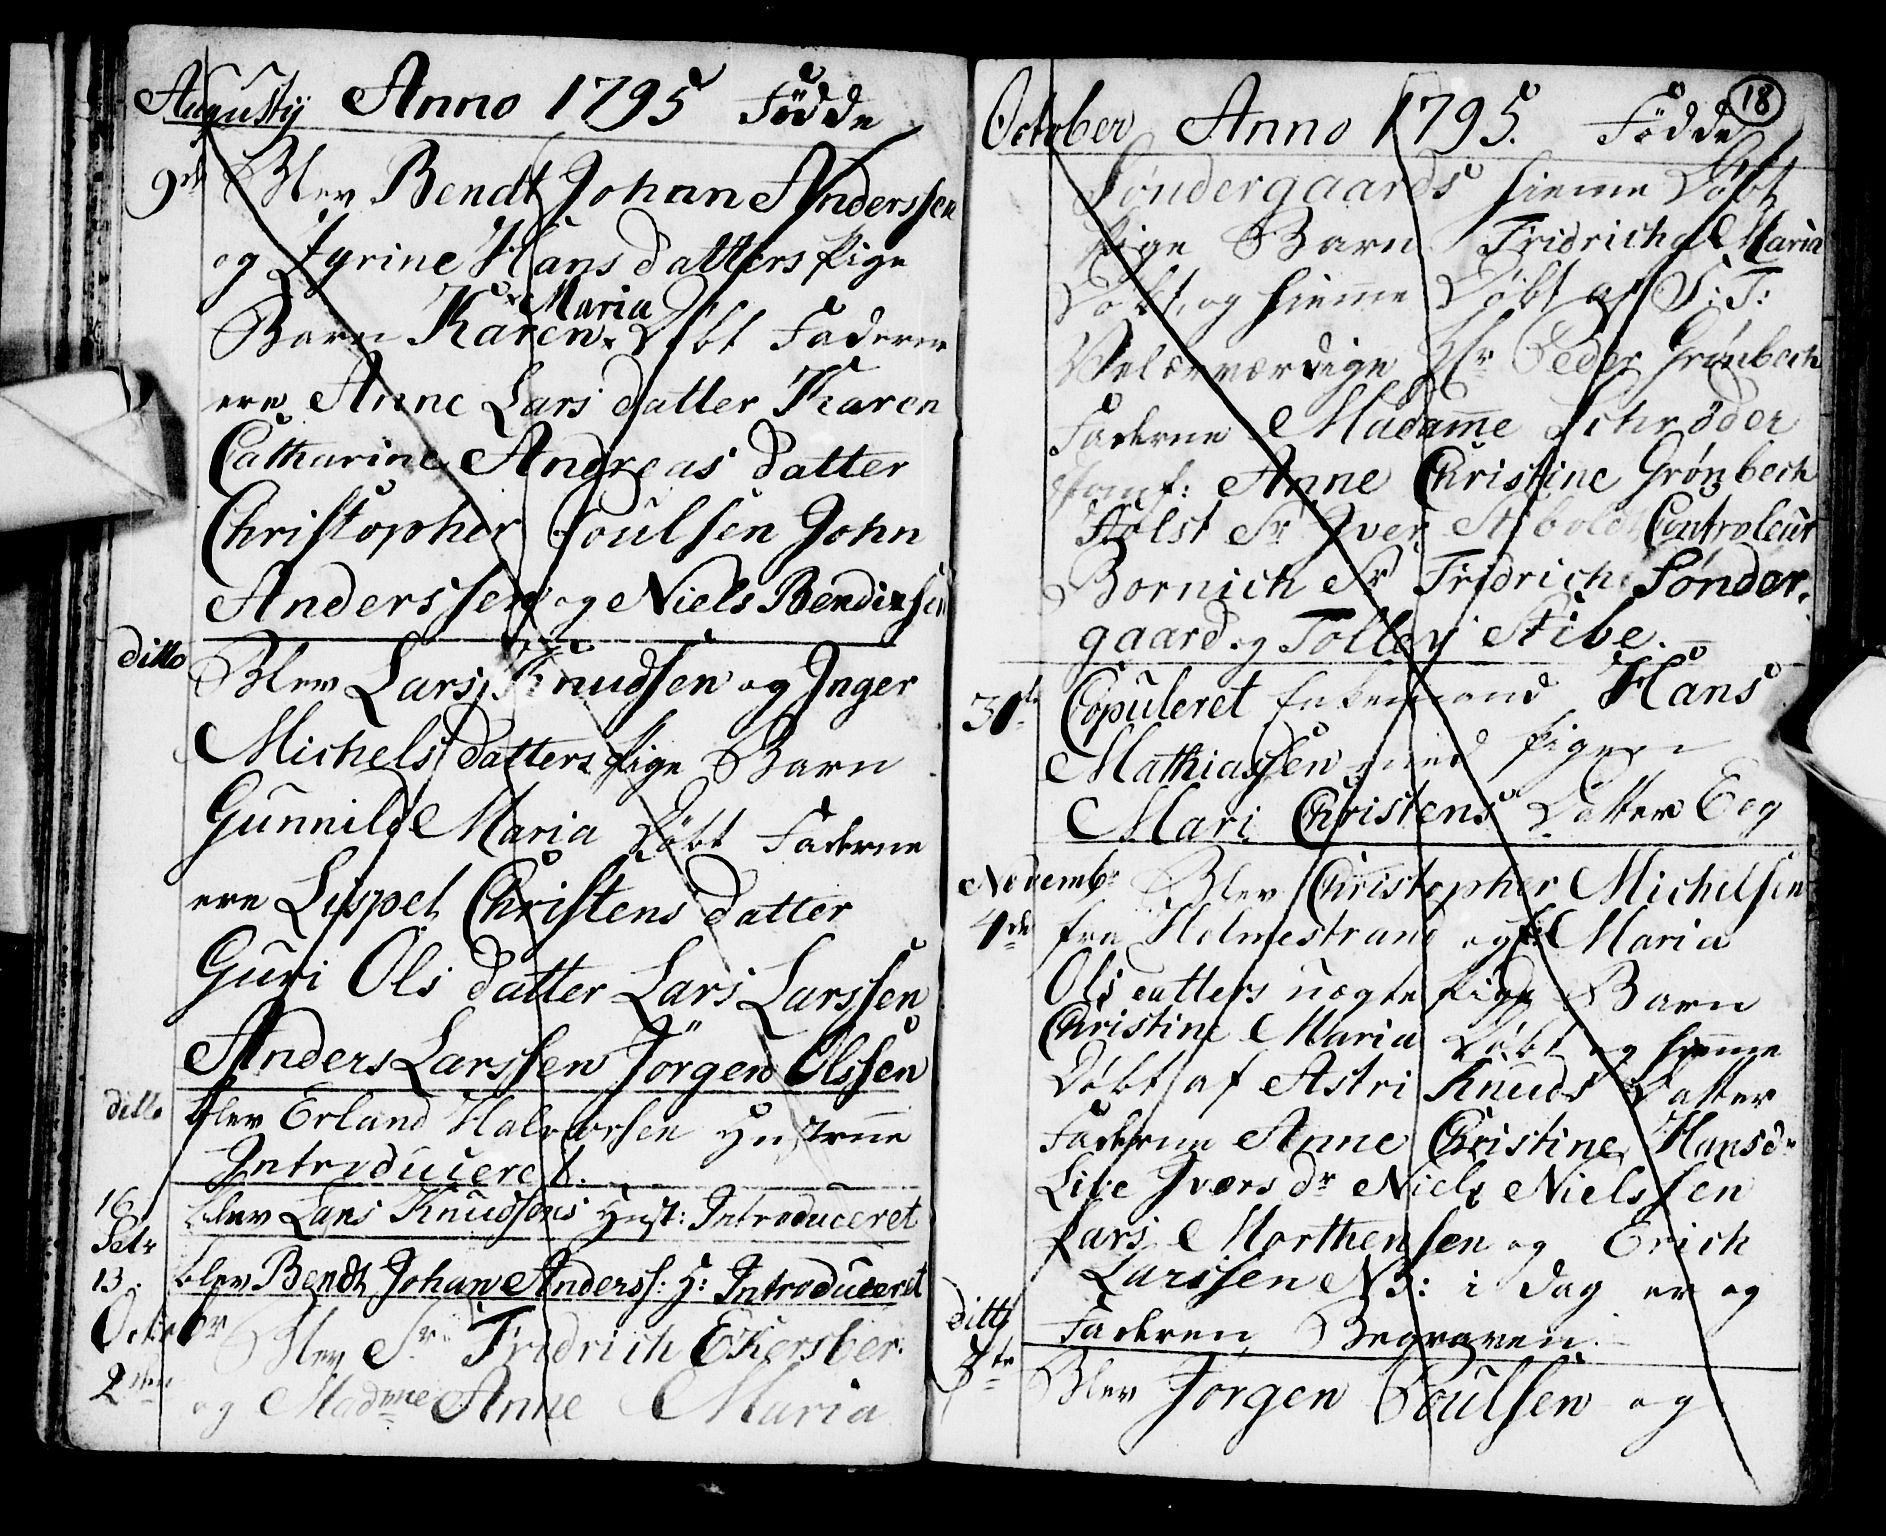 Augustij Anno 1795 Födde
9de Blev Bendt Johan Anderssen
og Zyrine Hans datters Pige
Maria
Barn Karen Döbt Faderne
ere Anne Lars datter Karen
Catharine Andreas datter
Christopher Poulsen John
Anderssen og Niels Bendixsen
ditto Blev Lars Knudsen og Inger
Michels datters Pige Barn
Gunnild Maria Döbt Faderne
ere Lispet Christens datter
Guri Ols datter Lars Larssen
Anders Larssen Jörgen Olssen
ditto blev Erland Halvorsen Hustrue
Introduceret.
16 blev Lars Knudsens Hust: Introduceret
Sebr
13. blev Bendt Johan Anderss: H: Introduceret
Octobr
Blev Sr Fridrich Ekersber.
2den og Madme Anne Maria
18
October Anno 1795. Födde
Söndergaards hieme Döbt
Pige Barn Fridricha Maria
Döbt, og hieme Döbt af S: T:
Velærværdige Hr Peder Grönbech
Faderne Madame Schröder
Jomf: Anne Christine Grönbech
Holst Sr Iver Controleur
Bornich Sr Fridrich Sönder.
gaard og Tolley Stibe.
Copuleret Enkemand Hans
Mathiassen med Pigen
Mari Christens Datter Eeg
Novembr Blev Christopher Michelsen
4de fra Holmestrand og Maria
Ols datters uægte Pige Barn
Christine Maria Döbt og hieme
Döbt af Astri Knuds Datter
Faderne Anne Christine Hansdr
Live Ivers dr Niels Nielssen
Lars Morthensen og Erich
Larssen NB: i dag er og
ditto Faderen Begraven.
Blev Jorgen Poulsen og